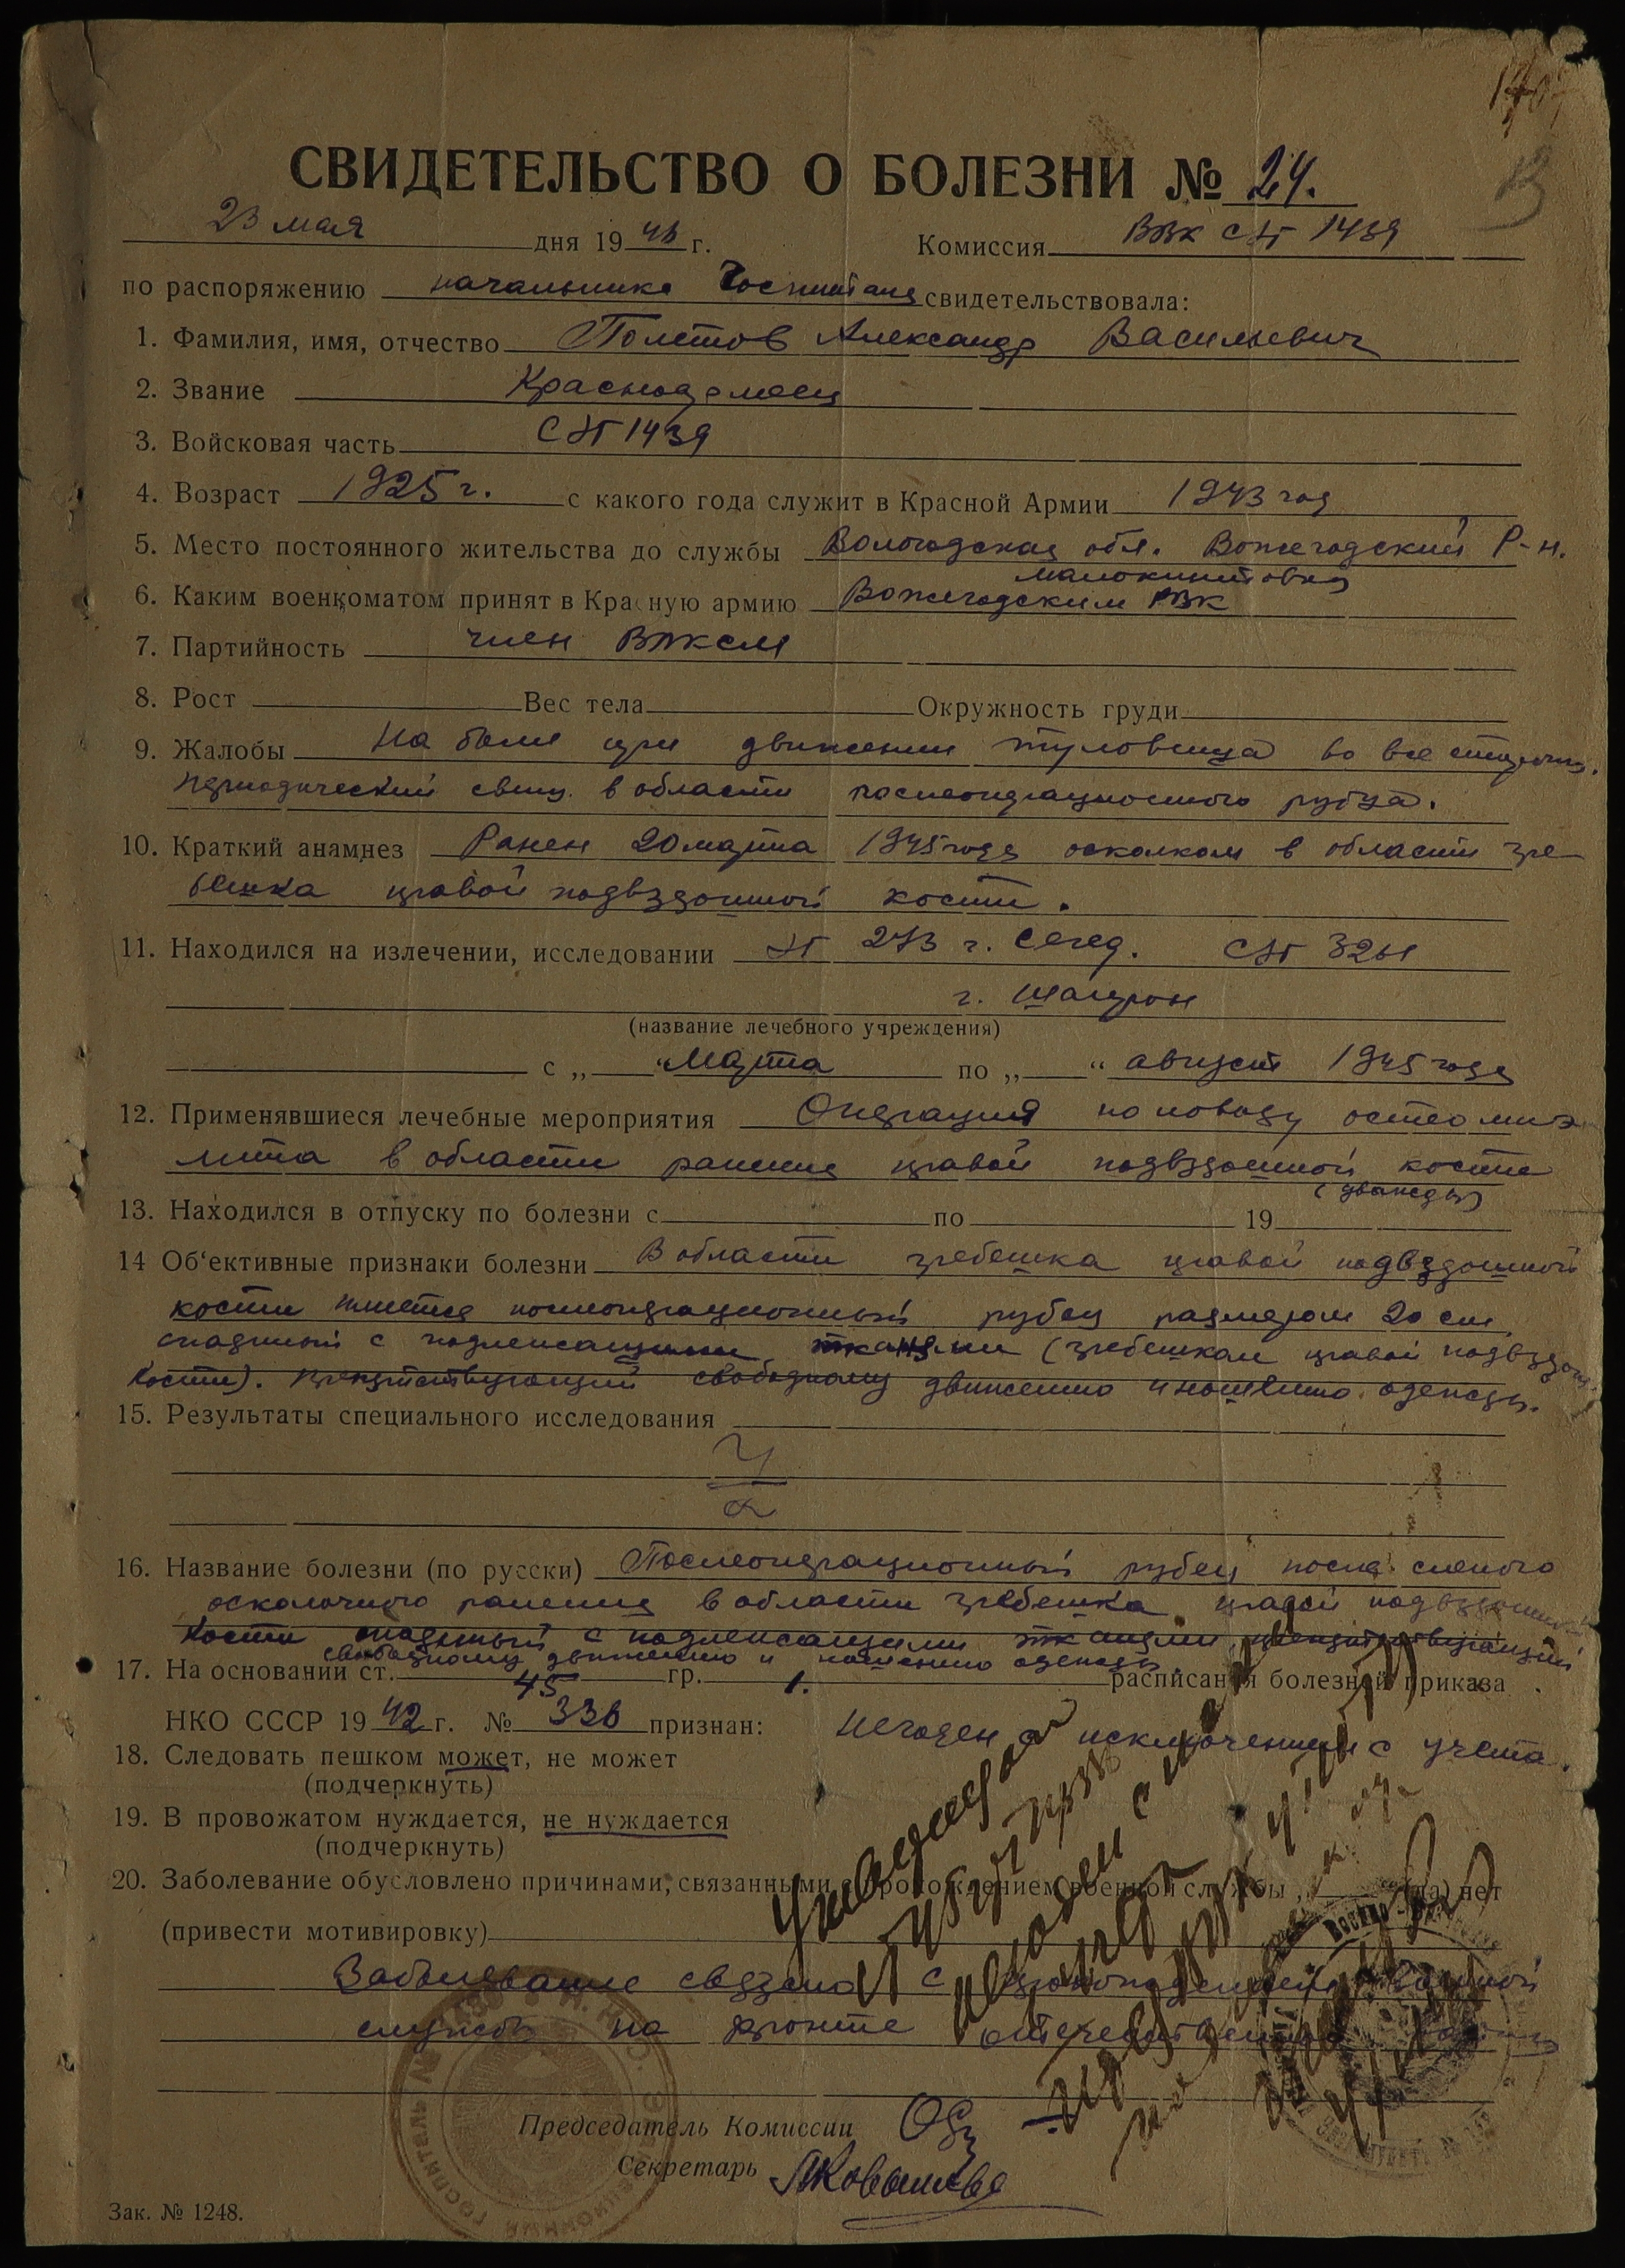 СВИДЕТЕЛЬСТВО О БОЛЕЗНИ № 24.
23 мая дня 1946 г. Комиссия ВВК СЭГ 1439
по распоряжению начальника Госпиталя свидетельствовала:
1. Фамилия, имя, отчество Полетов Александр Васильевич
2. Звание Красноармеец
3. Войсковая часть СЭГ 1439
4. Возраст 1925 г. с какого года служит в Красной Армии 1943 год
5. Место постоянного жительства до службы Вологодская обл. Вожегодский Р-н.
6. Каким военкоматом принят в Красную армию Вожегодским РВК
7. Партийность член ВЛКСМ
8. Рост Вес тела Окружность груди
9. Жалобы На боли при движении туловища во все стороны.
периодический свищ в области послеоперационного рубца.
10. Краткий анамнез Ранен 20 марта 1945 года осколком в области гре-
бешка правой подвздошной кости.
11. Находился на излечении, исследовании ЭГ 273 г. Сегед. СЭГ 3261
г. Шапрон
(название лечебного учреждения)
с „ “ Марта по „ “ август 1945 года
12. Применявшиеся лечебные мероприятия Операция по поводу остеомие
лита в области ранения правой подвздошной кости
(дважды)
13. Находился в отпуску по болезни с по 19
14 Об‘ективные признаки болезни В области гребешка правой подвздошной
кости имеется послеоперационный рубец размером 20 см
спаянный с подлежащими тканями (гребешком правой подвздош.
кости). препятствующий свободному движению и ношению одежды.
15. Результаты специального исследования
16. Название болезни (по русски) Послеоперационный рубец после слепого
осколочного ранения в области гребешка правой подвздошной
кости спаянный с подлежащими тканями, препятствующий
свободному движению и ношению одежды.
17. На основании ст. 45 гр. 1. расписания болезней приказа
НКО СССР 1942 г. № 336 признан: Негоден с исключением с учета.
18. Следовать пешком может, не может
(подчеркнуть)
19. В провожатом нуждается, не нуждается
(подчеркнуть)
20. Заболевание обусловлено причинами, связанными с прохождением военной службы (да) нет
(привести мотивировку)
Заболевание связано с прохождением военной
службы на фронте отечественной
Председатель Комиссии
Секретарь
Зак. № 1248.